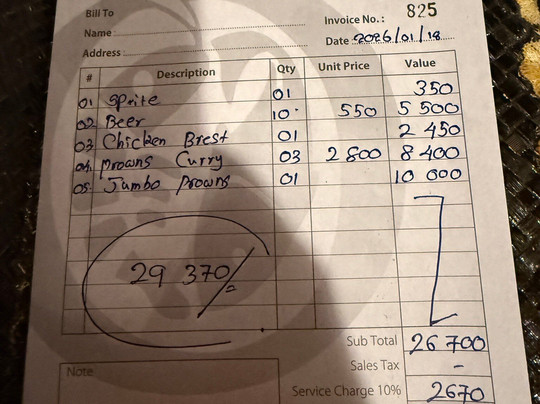 Bill To
Invoice No.: 825
Name
Date 2026/01/18
Address
# Description Qty Unit Price Value
01 Sprite 01 350
02 Beer 10 550 5 500
03 Chicken Brest 01 2 450
04 Prowns Curry 03 2 800 8 400
05 Jumbo Prowns 01 10 000
29 370/=
Sub Total 26 700
Sales Tax -
Note
Service Charge 10% 2670